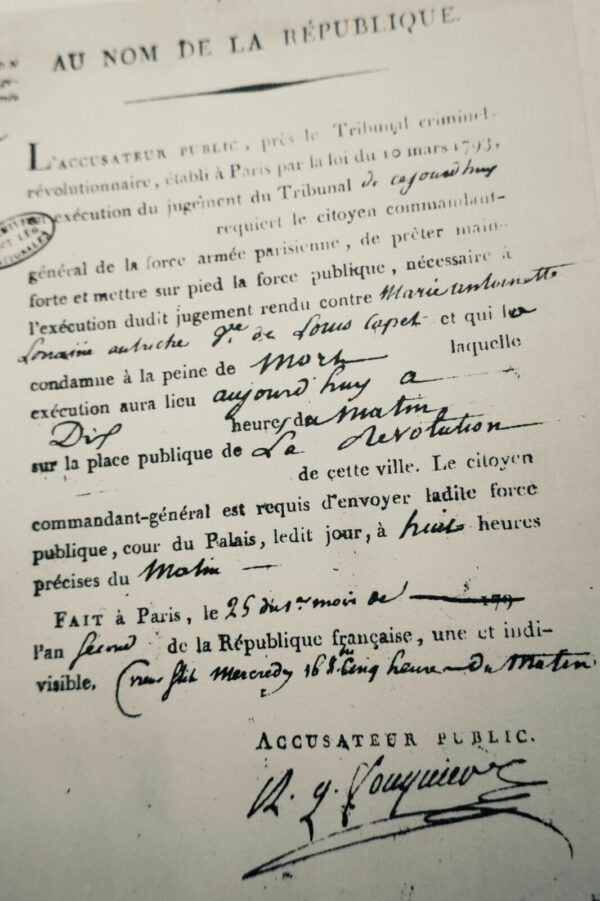 AU NOM DE LA RÉPUBLIQUE.
L'ACCUSATEUR PUBLIC, près le Tribunal criminel-
révolutionnaire, établi à Paris par la loi du 10 mars 1793,
exécution du jugement du Tribunal de cejourd'huy
requiert le citoyen commandant-
général de la force armée parisienne, de prêter main-
forte et mettre sur pied la force publique, nécessaire à
l'exécution dudit jugement rendu contre Marie Antoinette
Lorraine autriche Vve de Louis Capet et qui la
condamne à la peine de Mort laquelle
exécution aura lieu aujourd'huy a
Dix heures du Matin
sur la place publique de La Revolution
de cette ville. Le citoyen
commandant-général est requis d'envoyer ladite force
publique, cour du Palais, ledit jour, à huit heures
précises du Matin
FAIT à Paris, le 25 du 1er mois de 179
l'an Second de la République française, une et indi-
visible. (vieux stil Mercredy 16 8bre Cinq heure du Matin
ACCUSATEUR PUBLIC.
A. Q. Fouquier